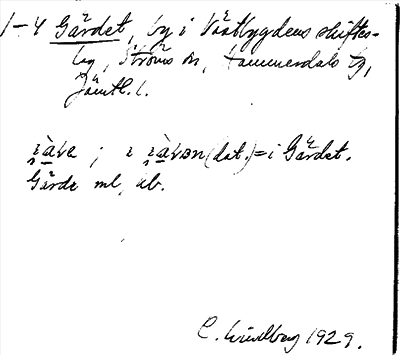 1-4 Gärdet, by i Västbygdens skiftes-
lag, Ströms sn, Hammerdals tg,
Jämtl. l.
i (dat.) = i Gärdet.
Gärde ml, ab.
C. Lindberg 1929.